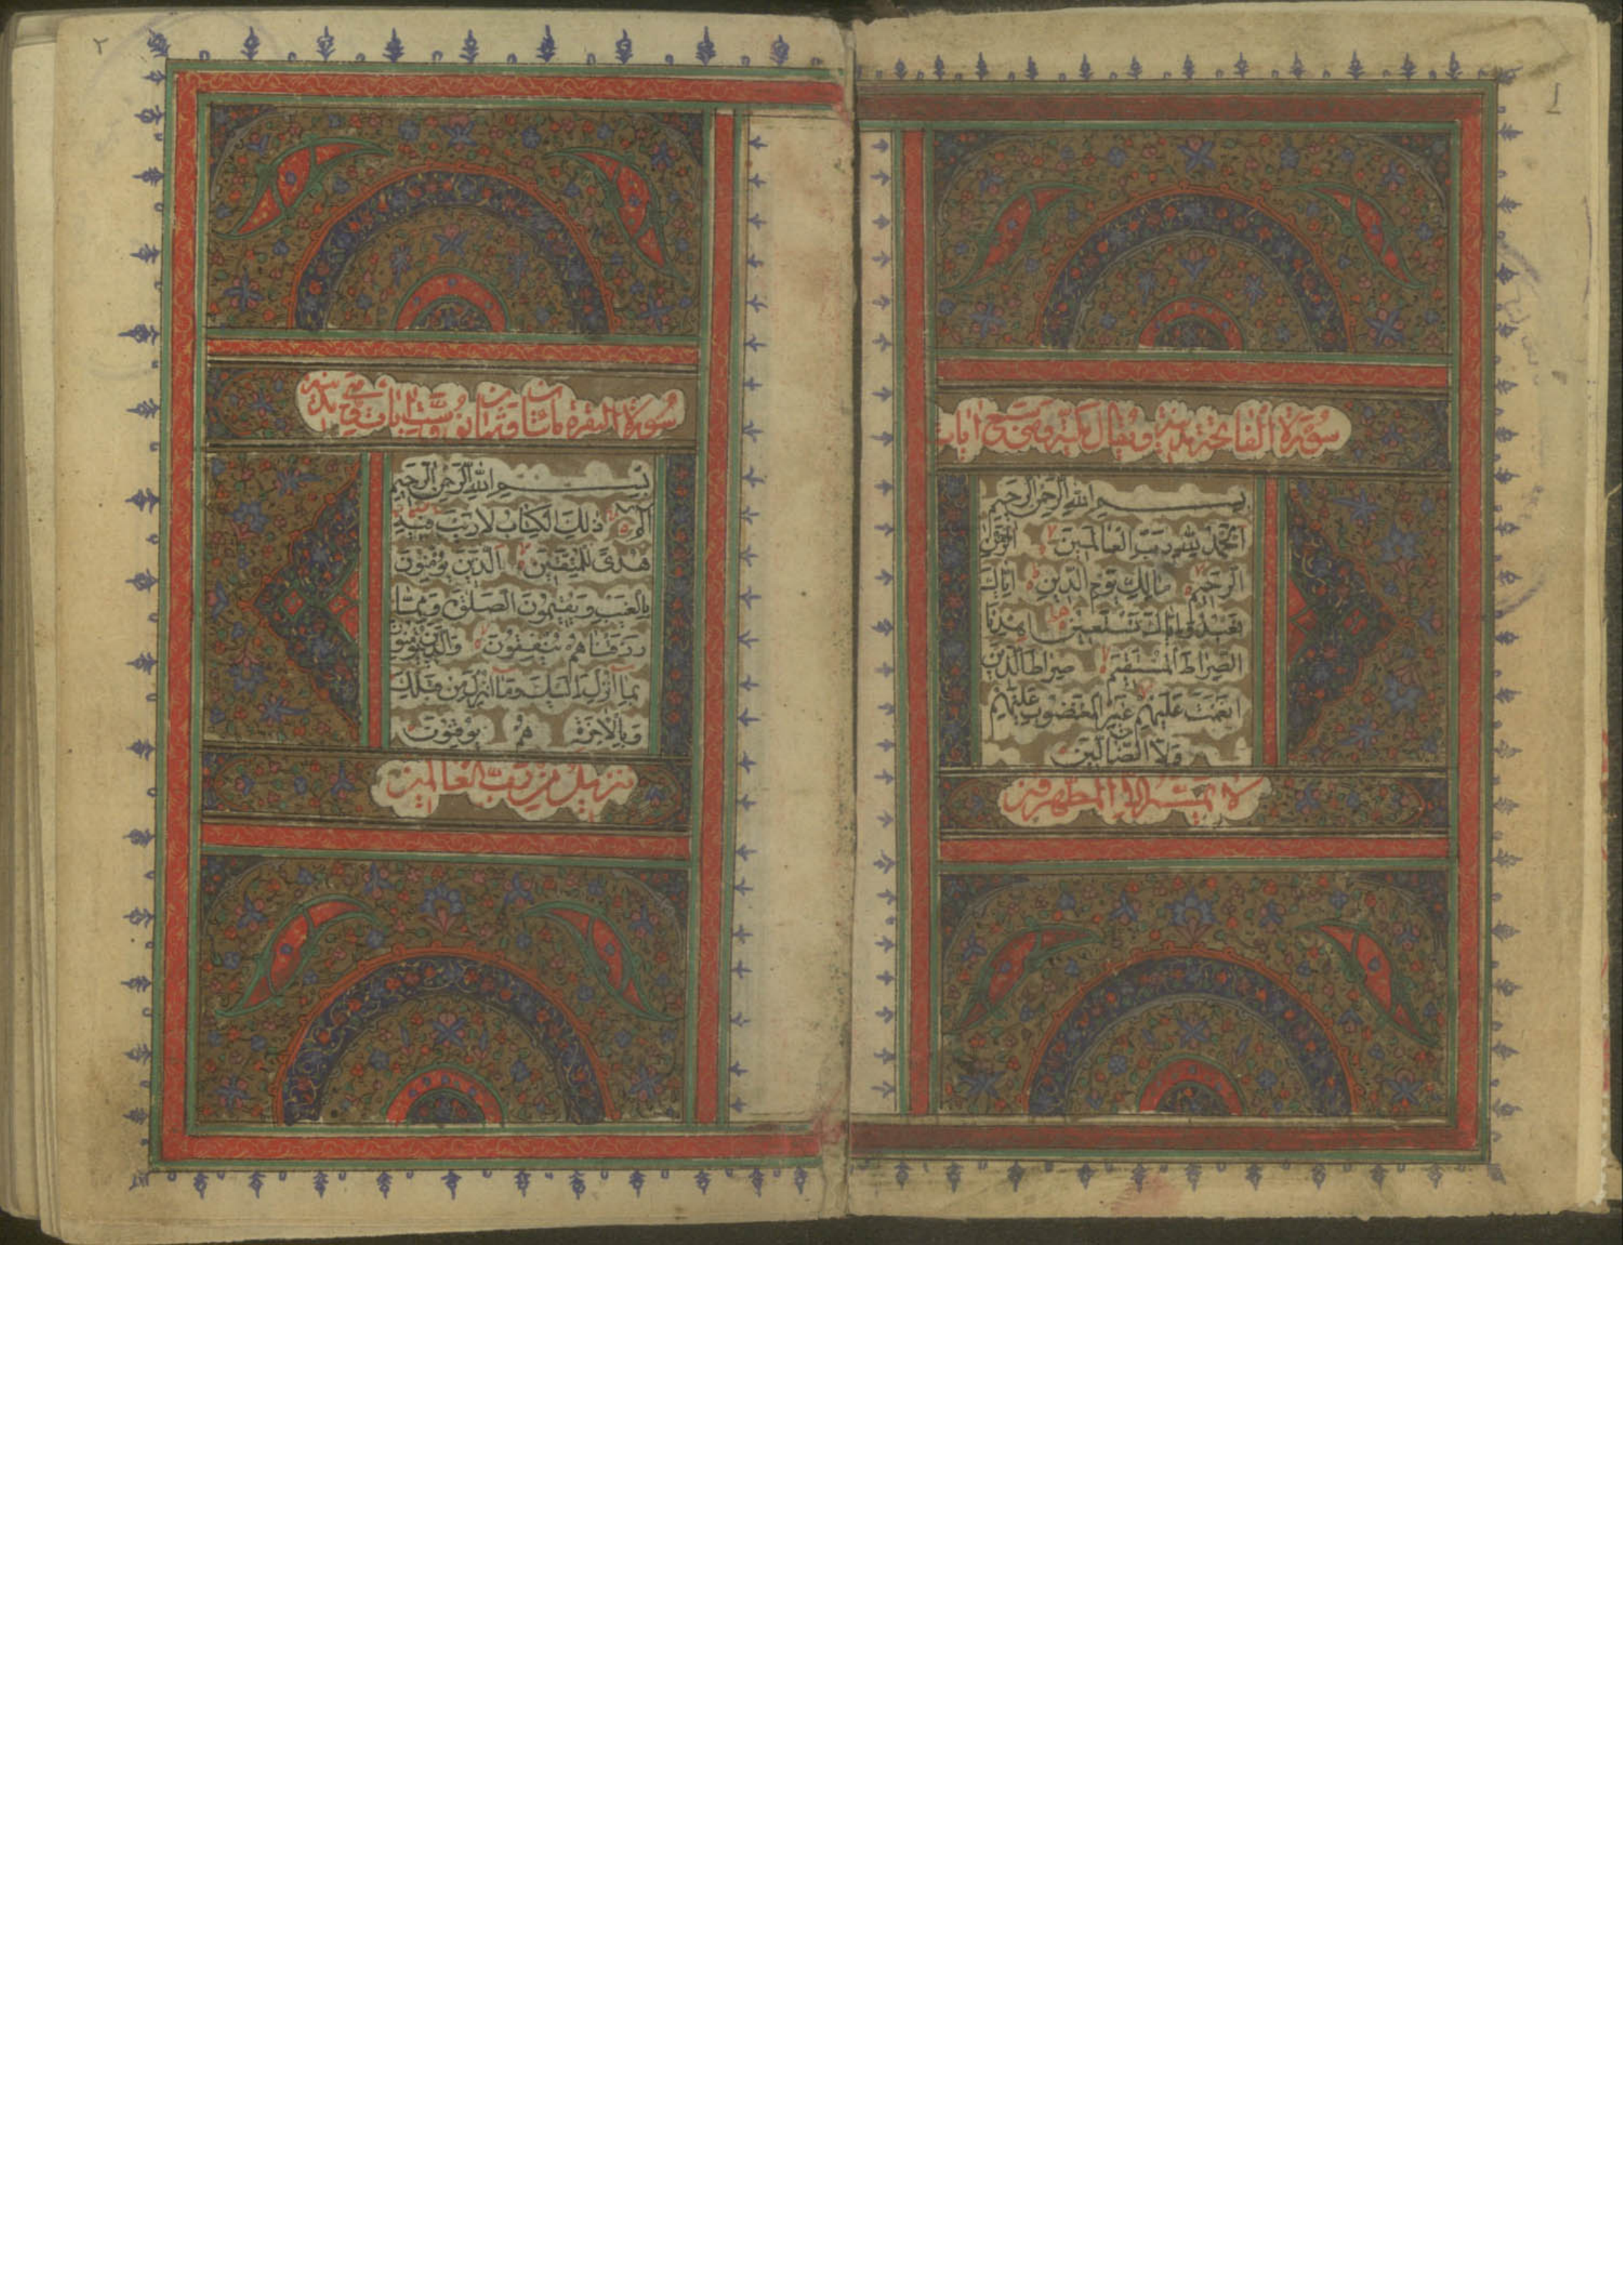 ١
سورة الفاتحة مدنية ويقال مكية وهي سبع ايات
بسم الله الرحمن الرحيم
الحمد لله رب العالمين الرحمن
الرحيم مالك يوم الدين اياك
نعبد واياك نستعين اهدنا
الصراط المستقيم صراط الذين
انعمت عليهم غير المغضوب عليهم
ولا الضالين
لا يمسه الا المطهرون
٢
سورة البقرة مائتان وثمانون وست ايات وهي مدنية
بسم الله الرحمن الرحيم
الم ذلك الكتاب لا ريب فيه
هدى للمتقين الذين يؤمنون
بالغيب ويقيمون الصلوة ومما
رزقناهم ينفقون والذين يؤمنون
بما انزل اليك وما انزل من قبلك
وبالاخرة هم يوقنون
تنزيل من رب العالمين